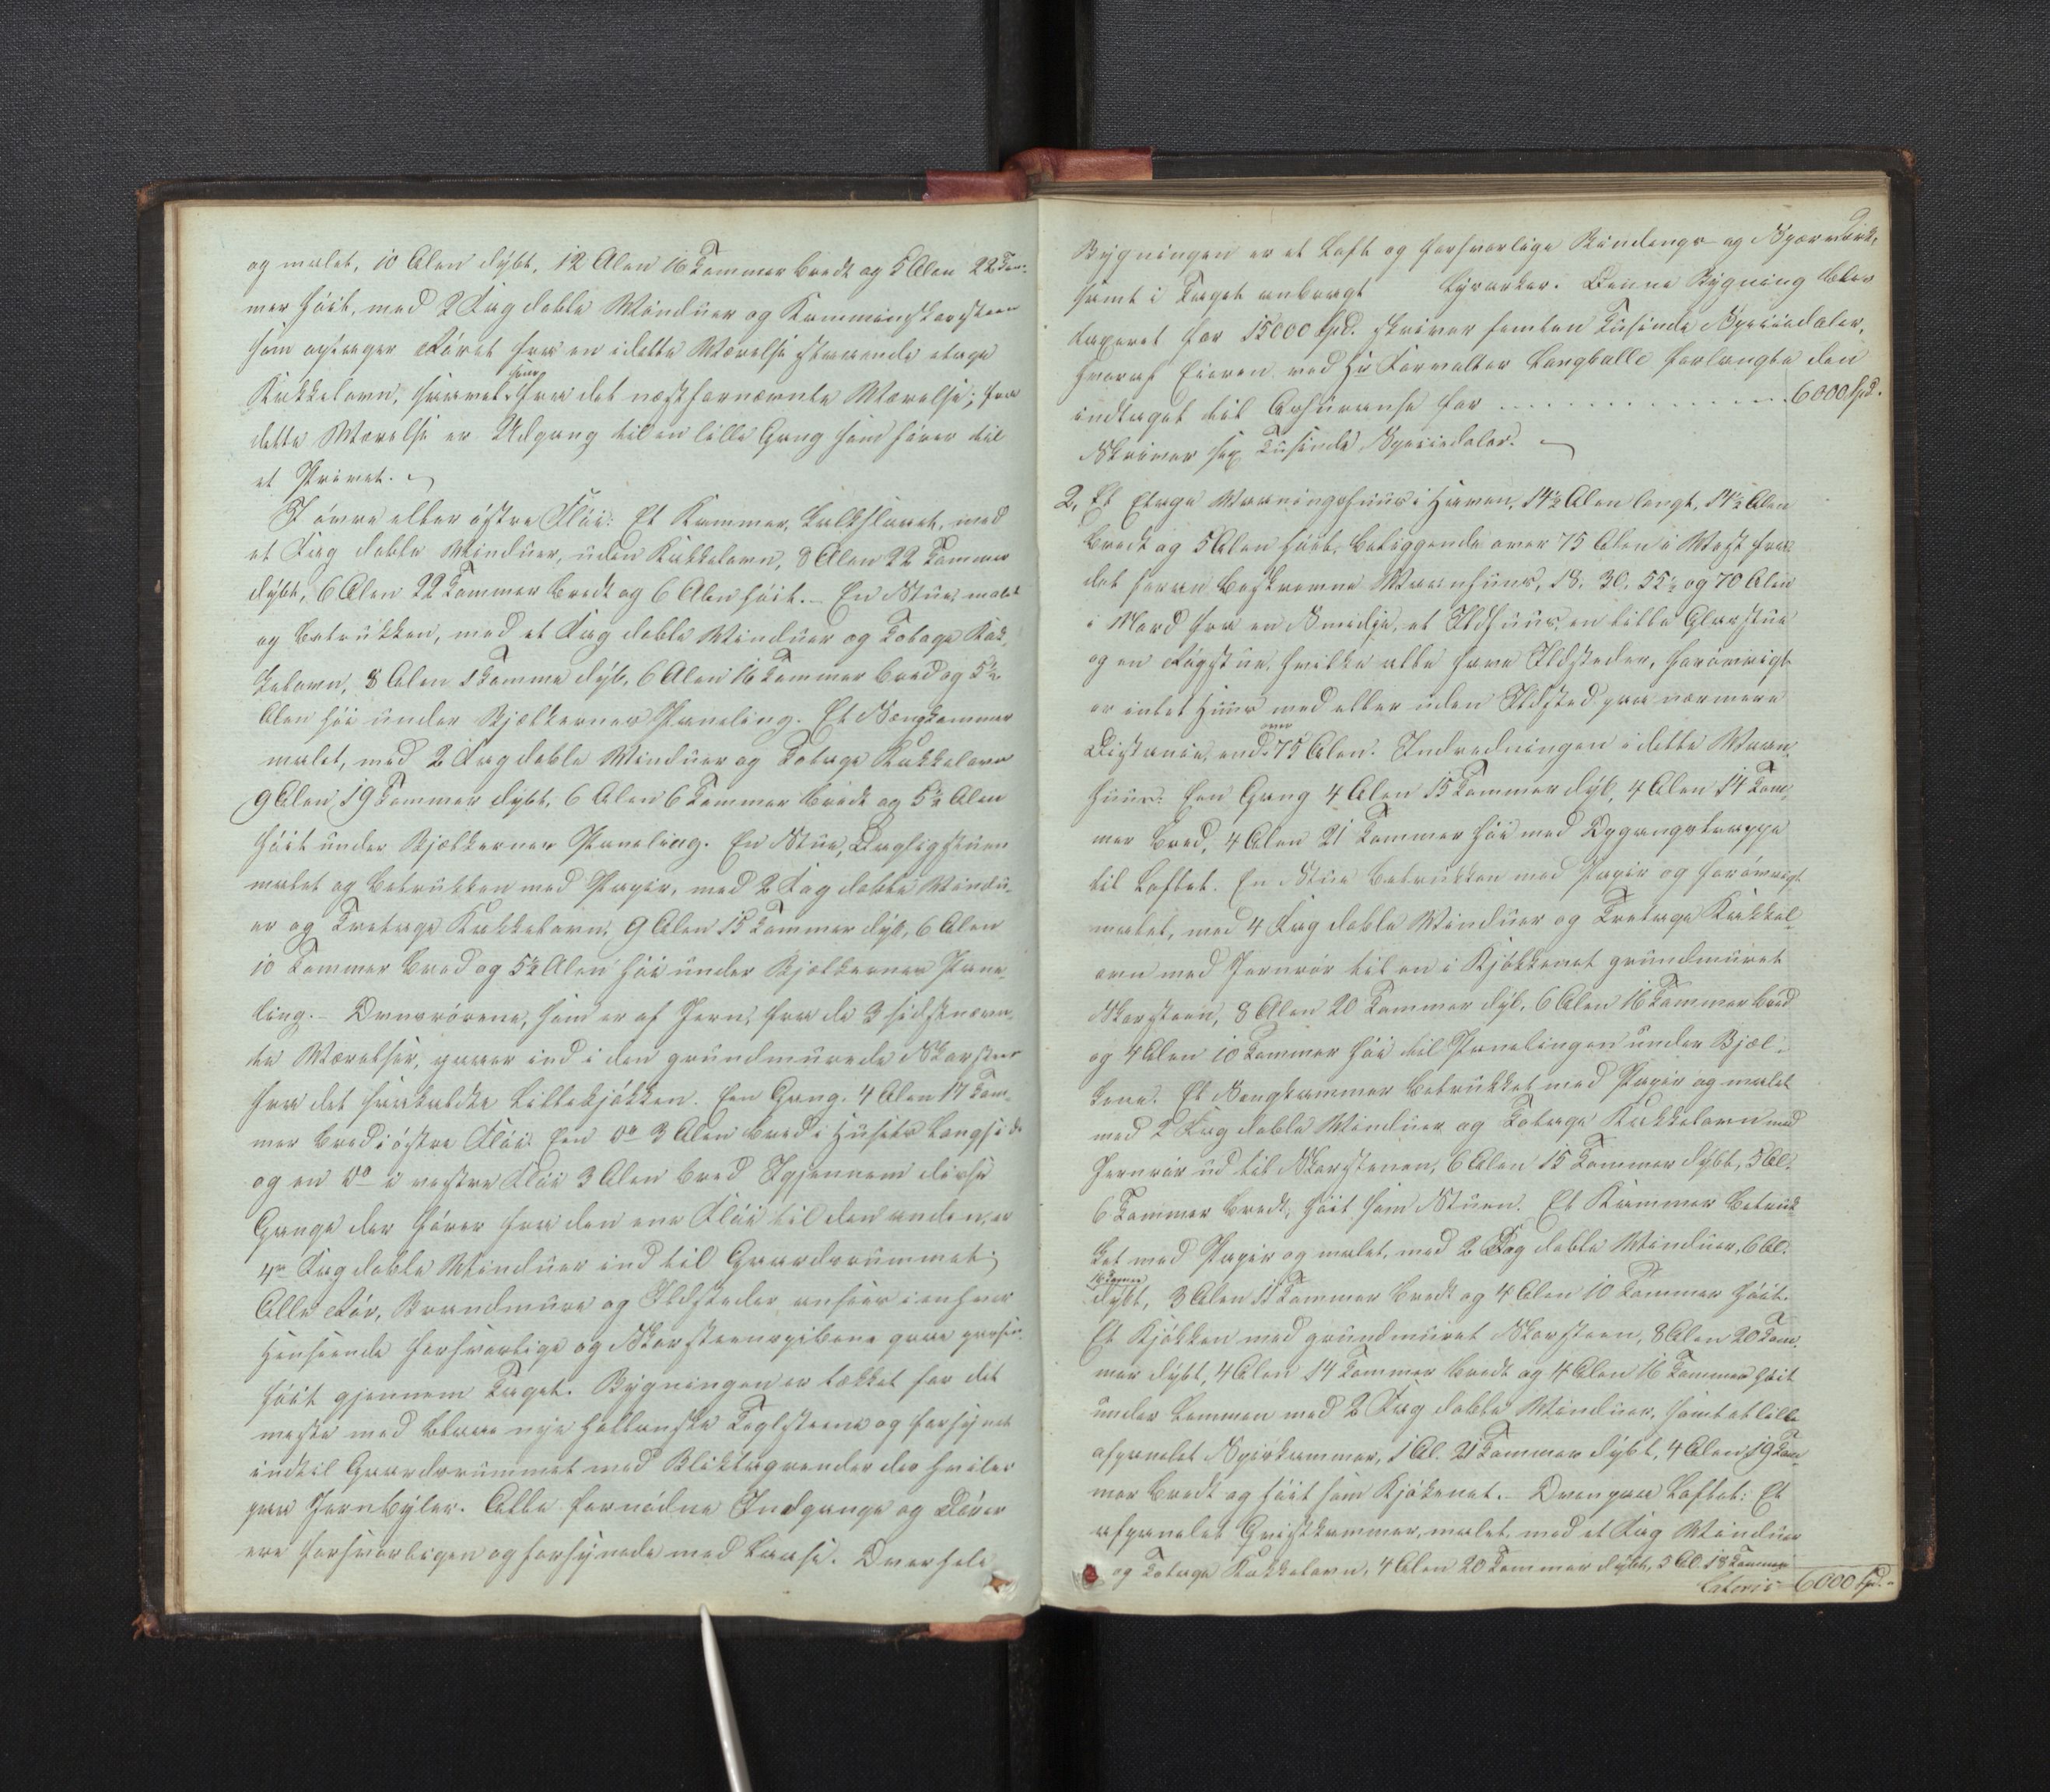 og malet, 10 Alen dybt, 12 Alen 16 Tommer bredt og 5 Alen 22 Tom-
mer høit, med 2 Fag doble Vinduer og Kaminskorsteen
som optager Røret fra en i dette Værelse staaende etage
Kakkelovn, saavel som fra det næstfornævnte Værelse; fra
dette Værelse er Udgang til en lille Gang som fører til
et Privet.
I øvre eller østre Fløi: Et Kammer, kalkslaaet, med
et Fag doble Vinduer, uden Kakkelovn, 8 Alen 22 Tommer
dybt, 6 Alen 22 Tommer bredt og 6 Alen høit. – En Stue malet
og betrukken, med et Fag doble Vinduer og Toetages Kak-
kelovn, 8 Alen 1 Tomme dyb, 6 Alen 16 Tommer bred og 5½
Alen høi under Bjelkernes Paneling. Et Sengkammer
malet, med 2 Fag doble Vinduer og Toetages Kakkelovn
9 Alen 19 Tommer dybt, 6 Alen 6 Tommer bredt og 5½ Alen
høit under Bjelkernes Paneling. En Stue, Dagligstuen
malet og betrukken med Papir, med 2 Fag doble Vindu-
er og Tretages Kakkelovn, 9 Alen 15 Tommer dyb, 6 Alen
10 Tommer bred og 5½ Alen høi under Bjelkernes Pane-
ling. – Ovnsrørene, som er af Jern, fra de 3 sidstnævn-
te Værelser, gaaer ind i den grundmurede Skorsteen
fra det saakaldte Lillekjøkken. Een Gang. 4 Alen 17 Tom-
mer bred i østre Fløi. Een do 3 Alen bred i Husets Langside
og en do i vestre Fløi 3 Alen bred Igjennem disse
Gange der fører fra den ene Fløi til den anden, er
4re Fag doble Vinduer ind til Gaardsrummet;
Alle Rør, Brandmure og Ildsteder ansees i enhver
Henseende forsvarlige og Skorsteenspiberne gaae
høit gjennem Taget. Bygningen er tækket for det
meste med blaae nye hollandske Teglstene og forsynet
indtil Gaardsrummet med Bliktagrender der hviler
paa Jernbøiler. Alle fornødne Indgange og Dører
ere forsvarligen og forsynede med Laase. Over hele
9
Bygningen er et Loft og forsvarlige Bindings- og Spærværk,
samt i Taget anbragt Qvarker. Denne Bygning blev
taxeret for 15000 Spd. skriver femten Tusinde Speciedaler,
hvoraf Eieren ved Hr Forvalter Langballe forlangte den
indtaget til Assurance for . . . . . . . . . . 6000 Spd.
Skriver sex Tusinde Speciedaler.
2, Et Etages Vaaningshuus i Haven, 14½ Alen langt, 14½ Alen
bredt og 5 Alen høit, beliggende over 75 Alen i Vest fra
det foran beskrevne Vaanhuus, 18, 30, 55½ og 70 Alen
i Nord fra en Smedje, et Ildhuus, en lille Glarstue
og en Røgstue, hvilke alle have Ildsteder, forøvrigt
er intet Huus med eller uden Ildsted paa nærmere
Distance, end over 75 Alen. Indredningen i dette Vaan-
huus: Een Gang 4 Alen 15 Tommer dyb, 4 Alen 14 Tom-
mer bred, 4 Alen 21 Tommer høi med Opgangstrappe
til Loftet. En Stue betrukken med Papir og forøvrigt
malet, med 4 Fag doble Vinduer og Tretages Kakkel-
ovn med Jernrør til en i Kjøkkenet grundmuret
Skorsteen, 8 Alen 20 Tommer dyb, 6 Alen 16 Tommer bred
og 4 Alen 10 Tommer høi til Panelingen under Bjel-
kene. Et Sengkammer betrukket med Papir og malet
med 2 Fag doble Vinduer og Toetages Kakkelovn med
Jernrør ud til Skorstenen, 6 Alen 15 Tommer dybt, 5 Al.
6 Tommer bredt, høit som Stuen. Et Kammer betruk-
ket med Papir og malet, med 2 Fag doble Vinduer, 6 Al.
16 Tommer dybt, 3 Alen 11 Tommer bredt og 4 Alen 10 Tommer høit.
Et Kjøkken med grundmuret Skorsteen, 8 Alen 20 Tom-
mer dybt, 4 Alen 14 Tommer bredt og 4 Alen 16 Tommer høit
under Lemmen med 2 Fag doble Vinduer, samt et lille
afpanelet Spiskammer, 1 Al. 21 Tommer dybt, 4 Alen 19 Tom-
mer bredt og høit som Kjøkenet. – Oven paa Loftet: Et
afpanelet Qvistkammer, malet, med et Fag Vinduer
og Toetages Kakkelovn, 4 Alen 20 Tommer dybt, 5 Al. 18 Tommer
Lateris 6000 Spd.